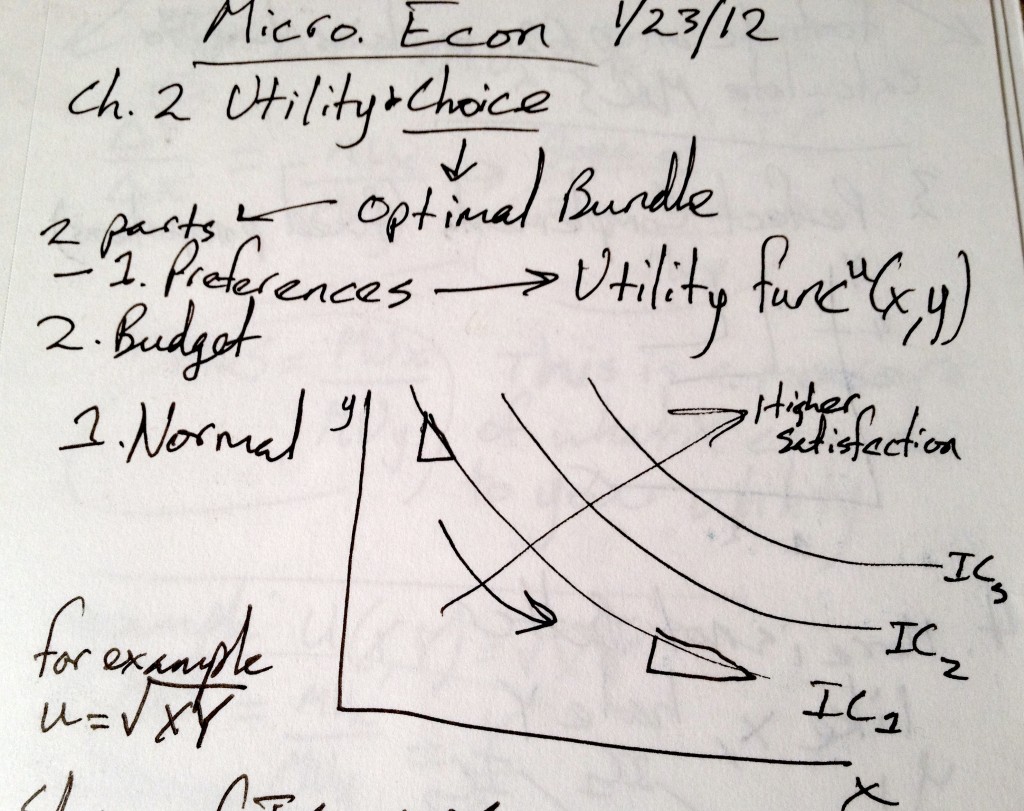 Micro. Econ 1/23/12
Ch. 2 Utility & Choice
↓
2 parts ← Optimal Bundle
– 1. Preferences → Utility func u(x,y)
2. Budget
1. Normal
y
Higher
Satisfaction
IC3
IC2
IC1
for example
u = √XY
x